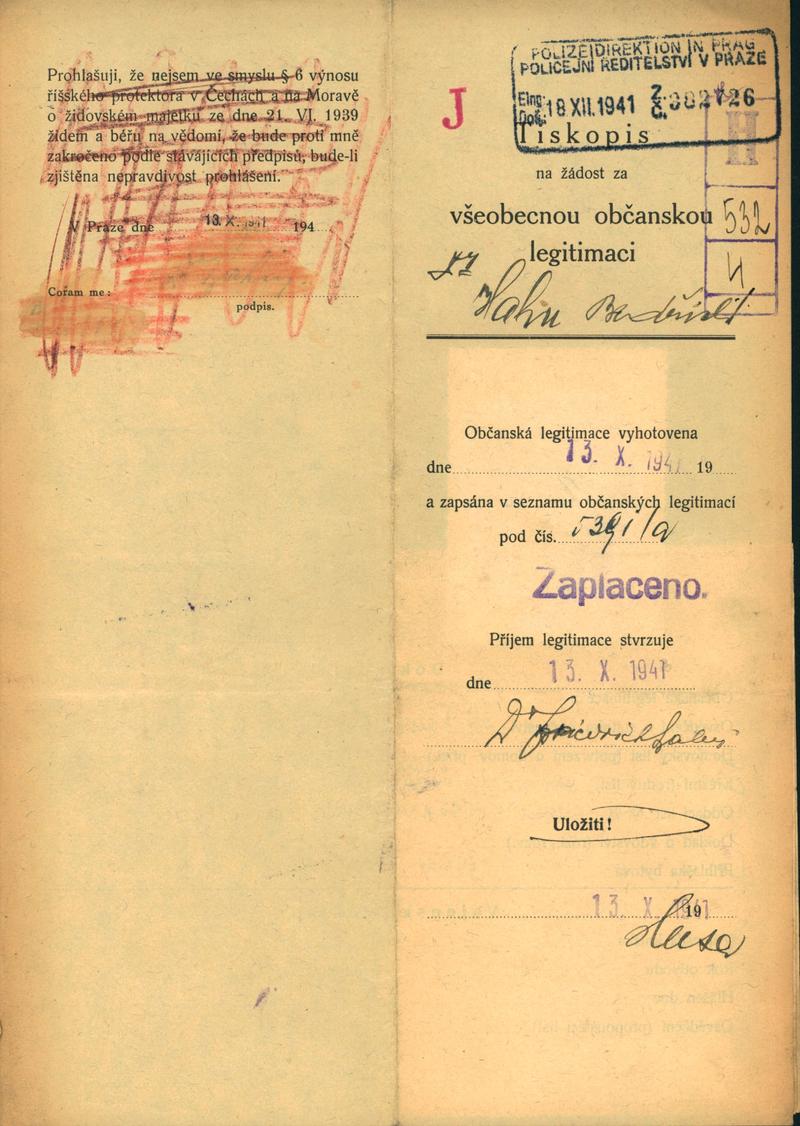 Prohlašuji, že nejsem ve smyslu § 6 výnosu
říšského protektora v Čechách a na Moravě
o židovském majetku ze dne 21. VI. 1939
židem a béřu na vědomí, že bude proti mně
zakročeno podle stávajících předpisů, bude-li
zjištěna nepravdivost prohlášení.
V Praze dne 13. X. 1941 194
Coram me:
podpis.
J
POLIZEIDIREKTION IN PRAG
POLICEJNÍ ŘEDITELSTVÍ V PRAZE
Eing.
Doš. 18 XII. 1941 Z.
Č.
Tiskopis
H
na žádost za
všeobecnou občanskou
532
legitimaci
4
Hahn Bedřich
Občanská legitimace vyhotovena
dne 13. X. 1941 19
a zapsána v seznamu občanských legitimací
pod čís. 5391/a
Zaplaceno.
Příjem legitimace stvrzuje
dne 13. X. 1941
Dr Friedrich
Uložiti!
13. X. 1941 19